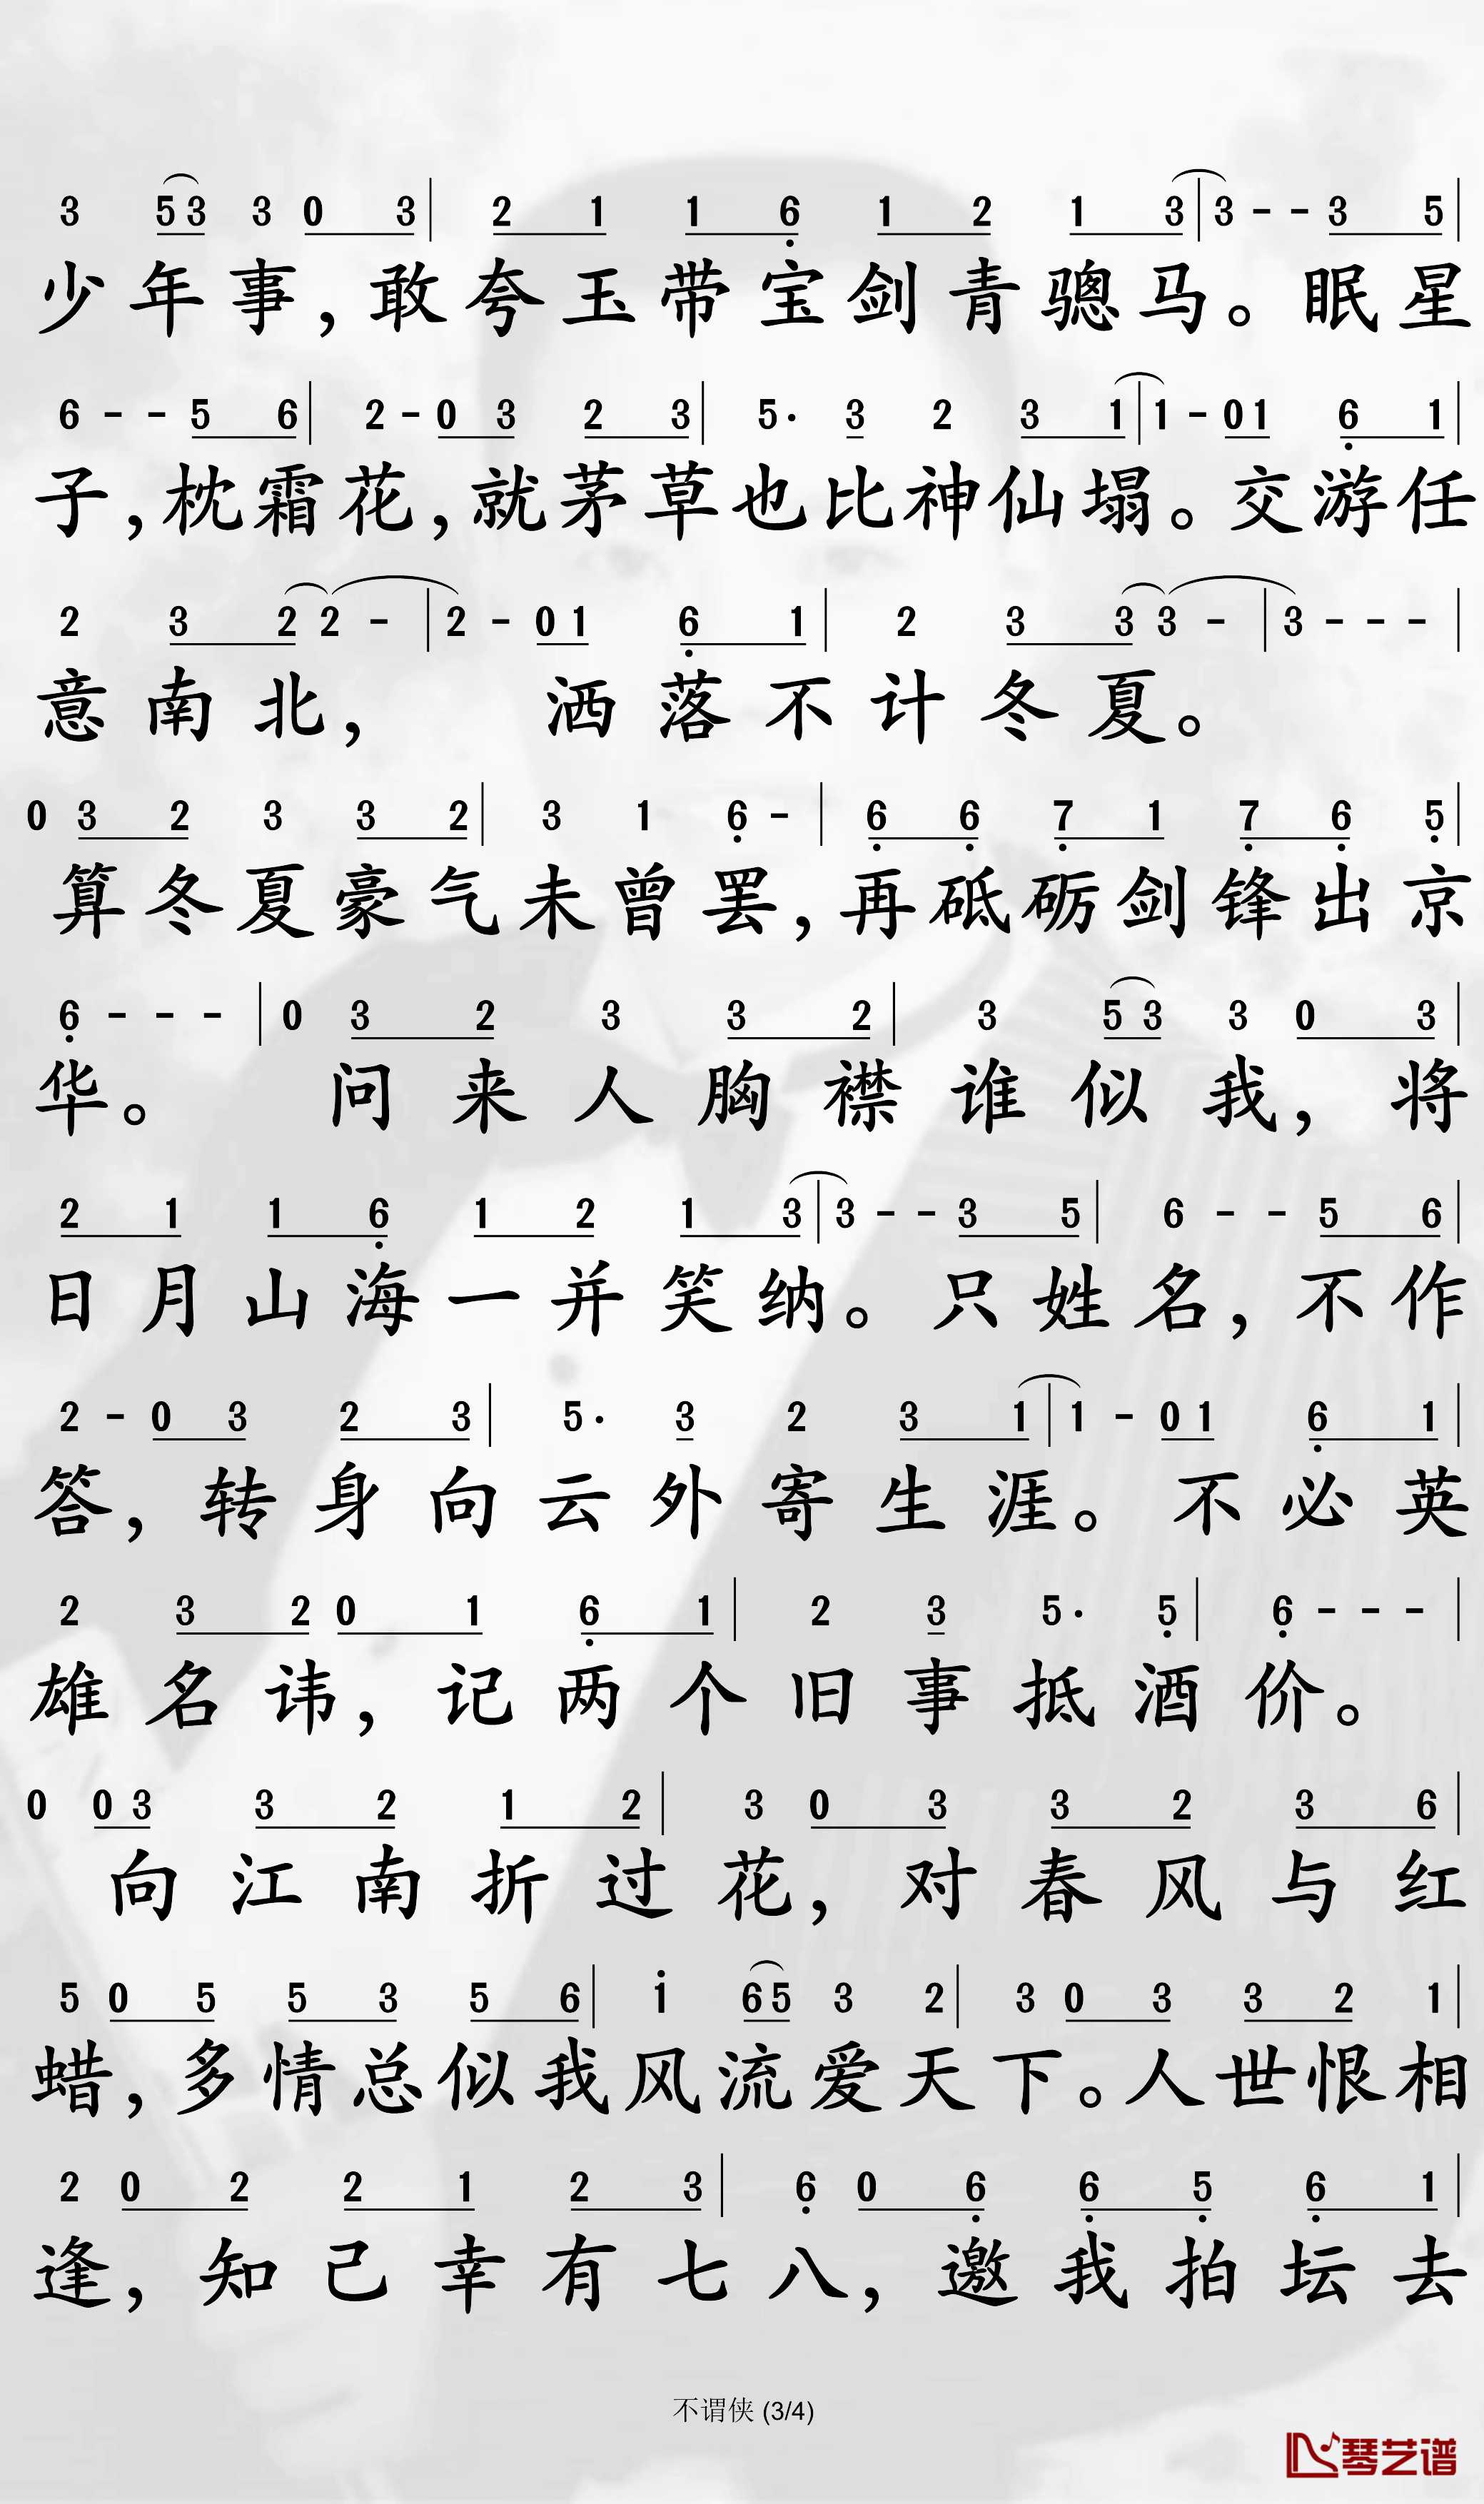 3 53 3 0 3 | 2 1 1 6 1 2 1 3 | 3 - - 3 5 |
少年事，敢夸玉带宝剑青骢马。眠星
6 - - 5 6 | 2 - 0 3 2 3 | 5· 3 2 3 1 | 1 - 0 1 6 1 |
子，枕霜花，就茅草也比神仙塌。交游任
2 3 2 2 - | 2 - 0 1 6 1 | 2 3 3 3 - | 3 - - - |
意南北，洒落不计冬夏。
0 3 2 3 3 2 | 3 1 6 - | 6 6 7 1 7 6 5 |
算冬夏豪气未曾罢，再砥砺剑锋出京
6 - - - | 0 3 2 3 3 2 | 3 53 3 0 3 |
华。问来人胸襟谁似我，将
2 1 1 6 1 2 1 3 | 3 - - 3 5 | 6 - - 5 6 |
日月山海一并笑纳。只姓名，不作
2 - 0 3 2 3 | 5· 3 2 3 1 | 1 - 0 1 6 1 |
答，转身向云外寄生涯。不必英
2 3 2 0 1 6 1 | 2 3 5· 5 | 6 - - - |
雄名讳，记两个旧事抵酒价。
0 0 3 3 2 1 2 | 3 0 3 3 2 3 6 |
向江南折过花，对春风与红
5 0 5 5 3 5 6 | i 65 3 2 | 3 0 3 3 2 1 |
蜡，多情总似我风流爱天下。人世恨相
2 0 2 2 1 2 3 | 6 0 6 6 5 6 1 |
逢，知己幸有七八，邀我拍坛去
不谓侠 (3/4)
琴艺谱